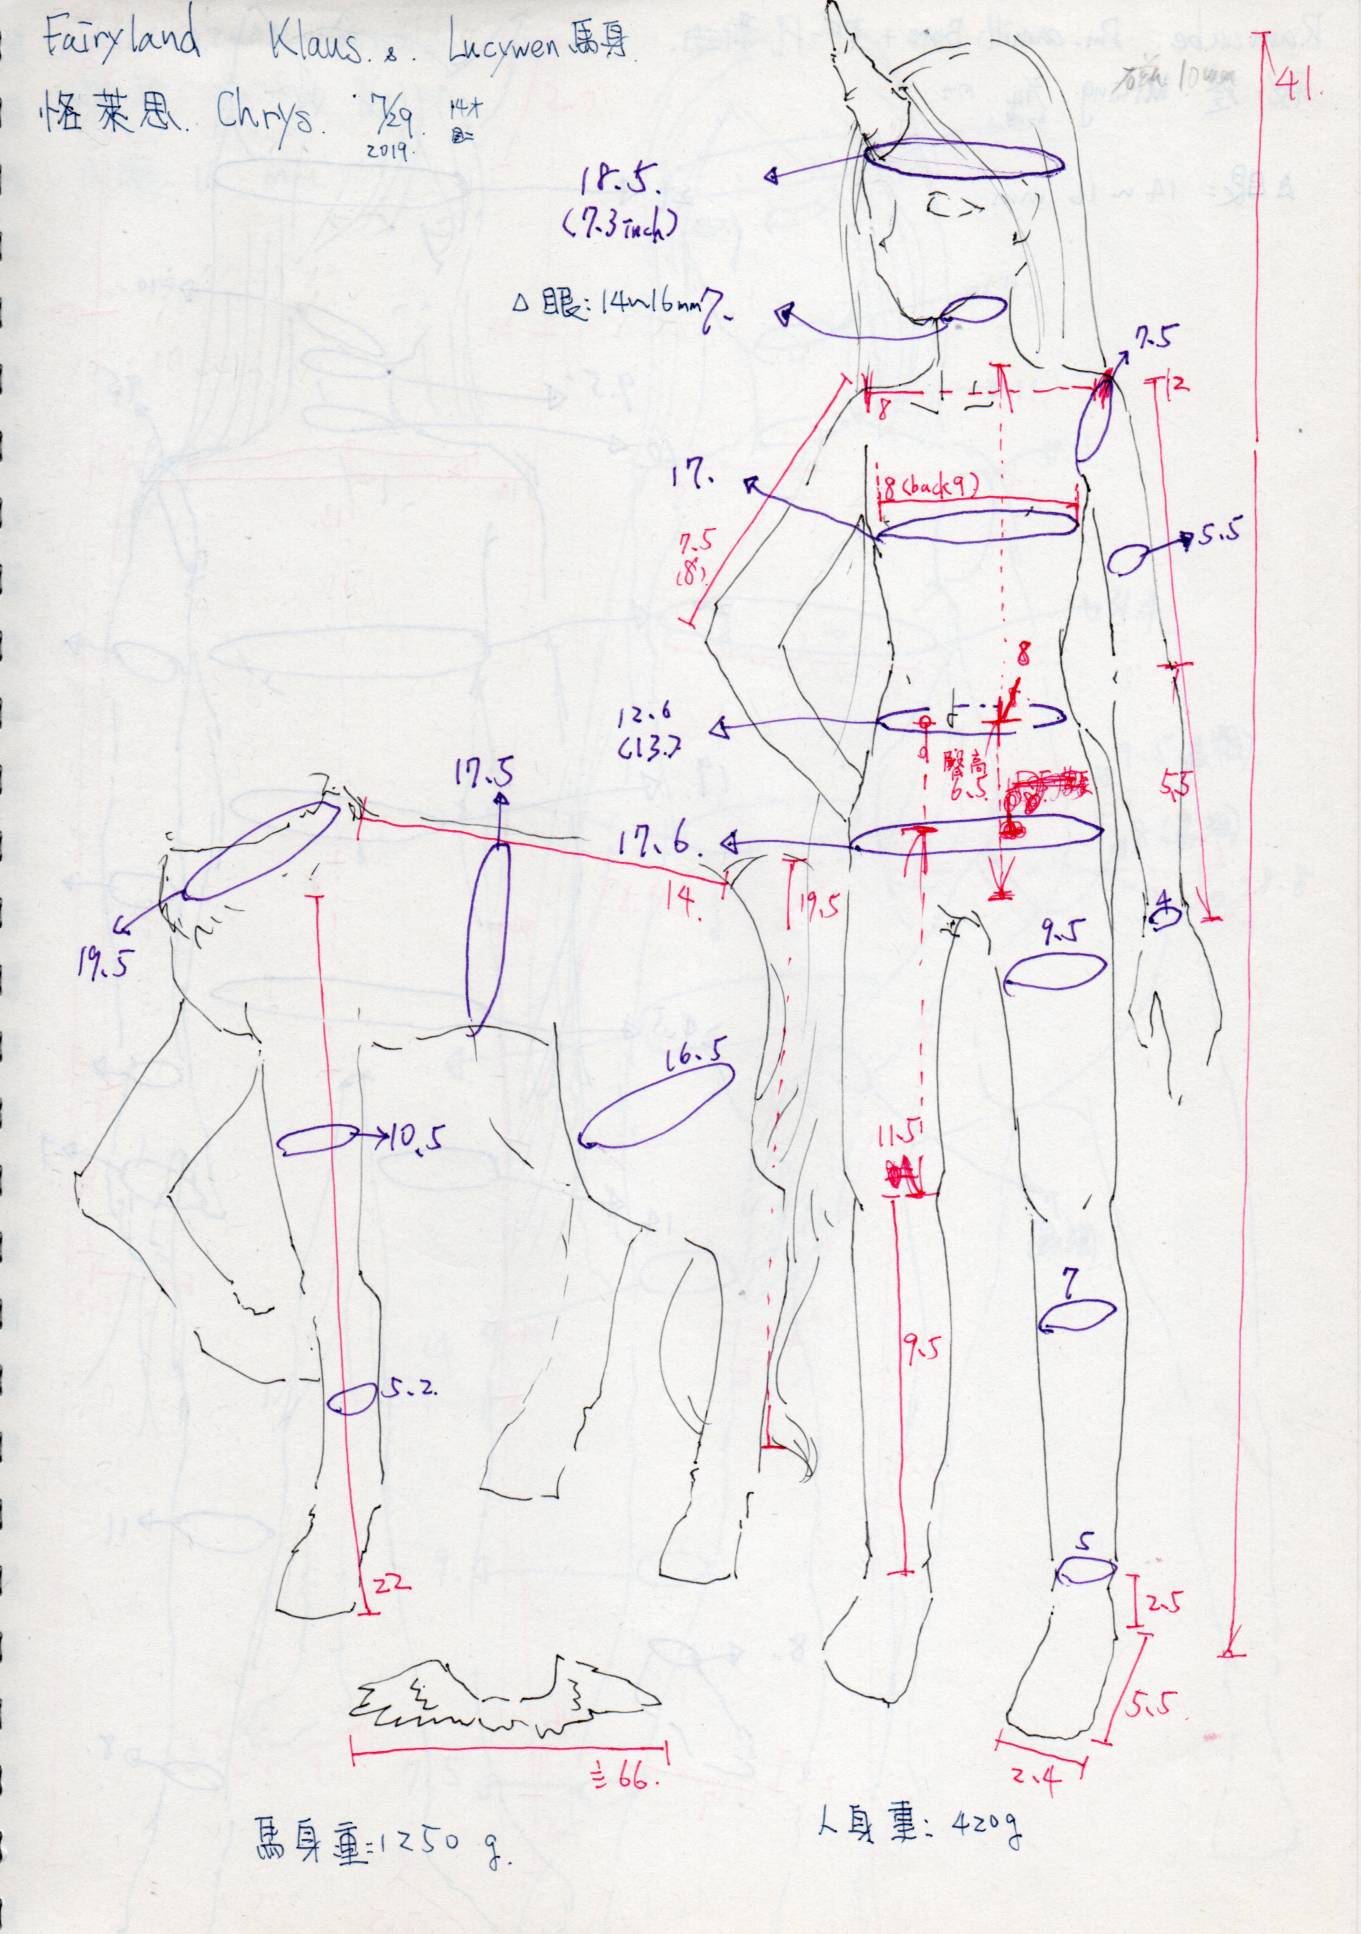 Fairyland Klaus. & Lucywen 馬身
恪萊思. Chrys. 7/29. 14才
2019.
10mm
41.
18.5.
(7.3 inch)
△眼: 14~16mm
7.
7.5
12
8
17.
8 (back 9)
7.5
(8)
5.5
8
12.6
(13.)
臀高
6.5
5.5
17.5
17.6.
14.
19.5
19.5
4
9.5
16.5
10.5
11.5
7
9.5
5.2.
5
22
2.5
5.5
2.4
≒66.
馬身重:1250 g.
人身重: 420g